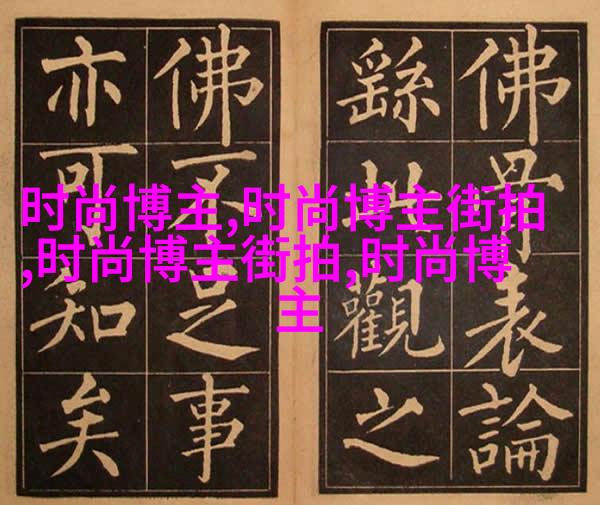 时尚博主,时尚博主街拍
,时尚博主街拍,时尚博
主
佛骨表論
繇此觀之
佛不足事
亦可知矣